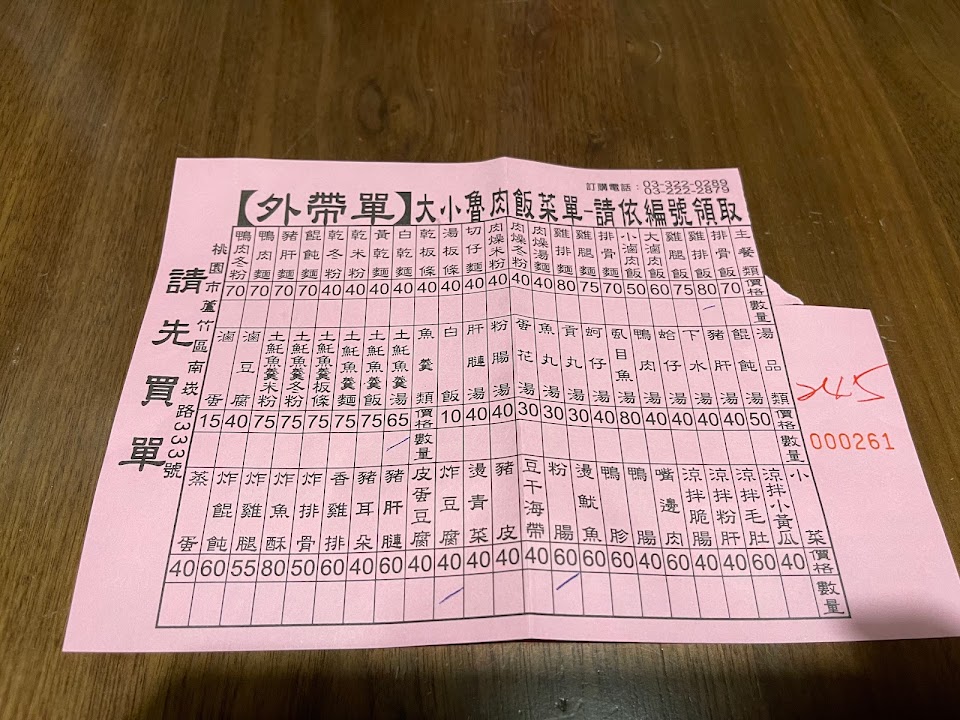 訂購電話：03-322-0289
03-222-2879
【外帶單】大小魯肉飯菜單-請依編號領取
主餐類 價格 數量
排骨飯 70
雞排飯 80
雞腿飯 75
大滷肉飯 60
小滷肉飯 50
排骨麵 70
雞腿麵 75
雞排麵 80
肉燥湯麵 40
肉燥冬粉 40
肉燥米粉 40
切仔麵 40
湯板條 40
乾板條 40
白乾麵 40
黃乾麵 40
乾米粉 40
乾冬粉 40
餛飩麵 70
豬肝麵 70
鴨肉麵 70
鴨肉冬粉 70
湯品類 價格 數量
餛飩湯 50
豬肝湯 40
下水湯 40
蛤仔湯 40
鴨肉湯 40
虱目魚湯 80
蚵仔湯 40
貢丸湯 30
魚丸湯 30
蛋花湯 30
粉腸湯 40
肝膢湯 40
白飯 10
魚羹類 價格 數量
土魠魚羹湯 65
土魠魚羹麵 75
土魠魚羹麵 75
土魠魚羹板條 75
土魠魚羹冬粉 75
土魠魚羹米粉 75
滷豆腐 40
滷蛋 15
小菜 價格 數量
涼拌小黃瓜 40
涼拌毛肚 60
涼拌粉肝 40
涼拌脆腸 40
嘴邊肉 60
鴨腸 40
鴨胗 60
燙魷魚 60
粉腸 60
豆干海帶 40
豬皮 40
燙青菜 40
炸豆腐 40
皮蛋豆腐 40
豬肝膢 60
豬耳朵 40
香雞排 60
炸排骨 50
炸魚酥 80
炸雞腿 55
炸餛飩 60
蒸蛋 40
桃園市蘆竹區南崁路333號
請先買單
245
000261